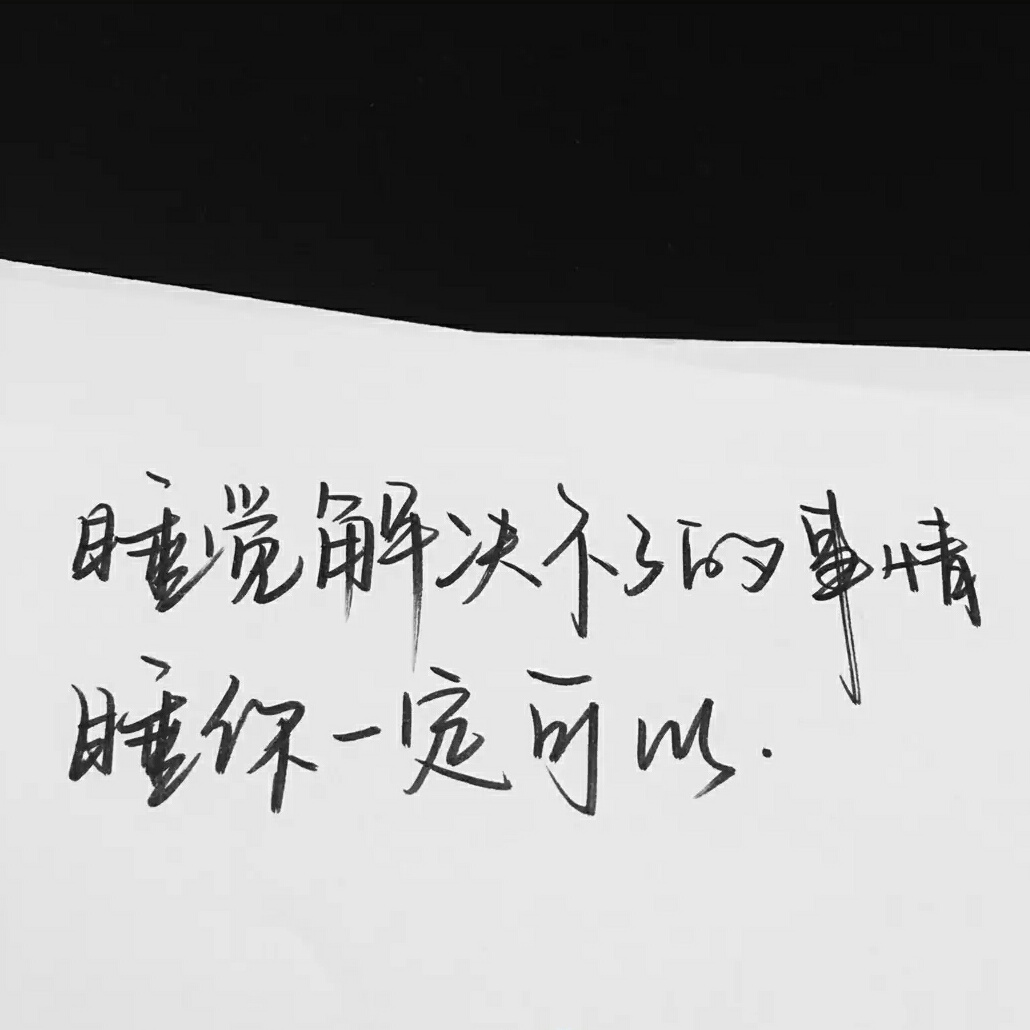 睡觉解决不了的事情
睡你一定可以.